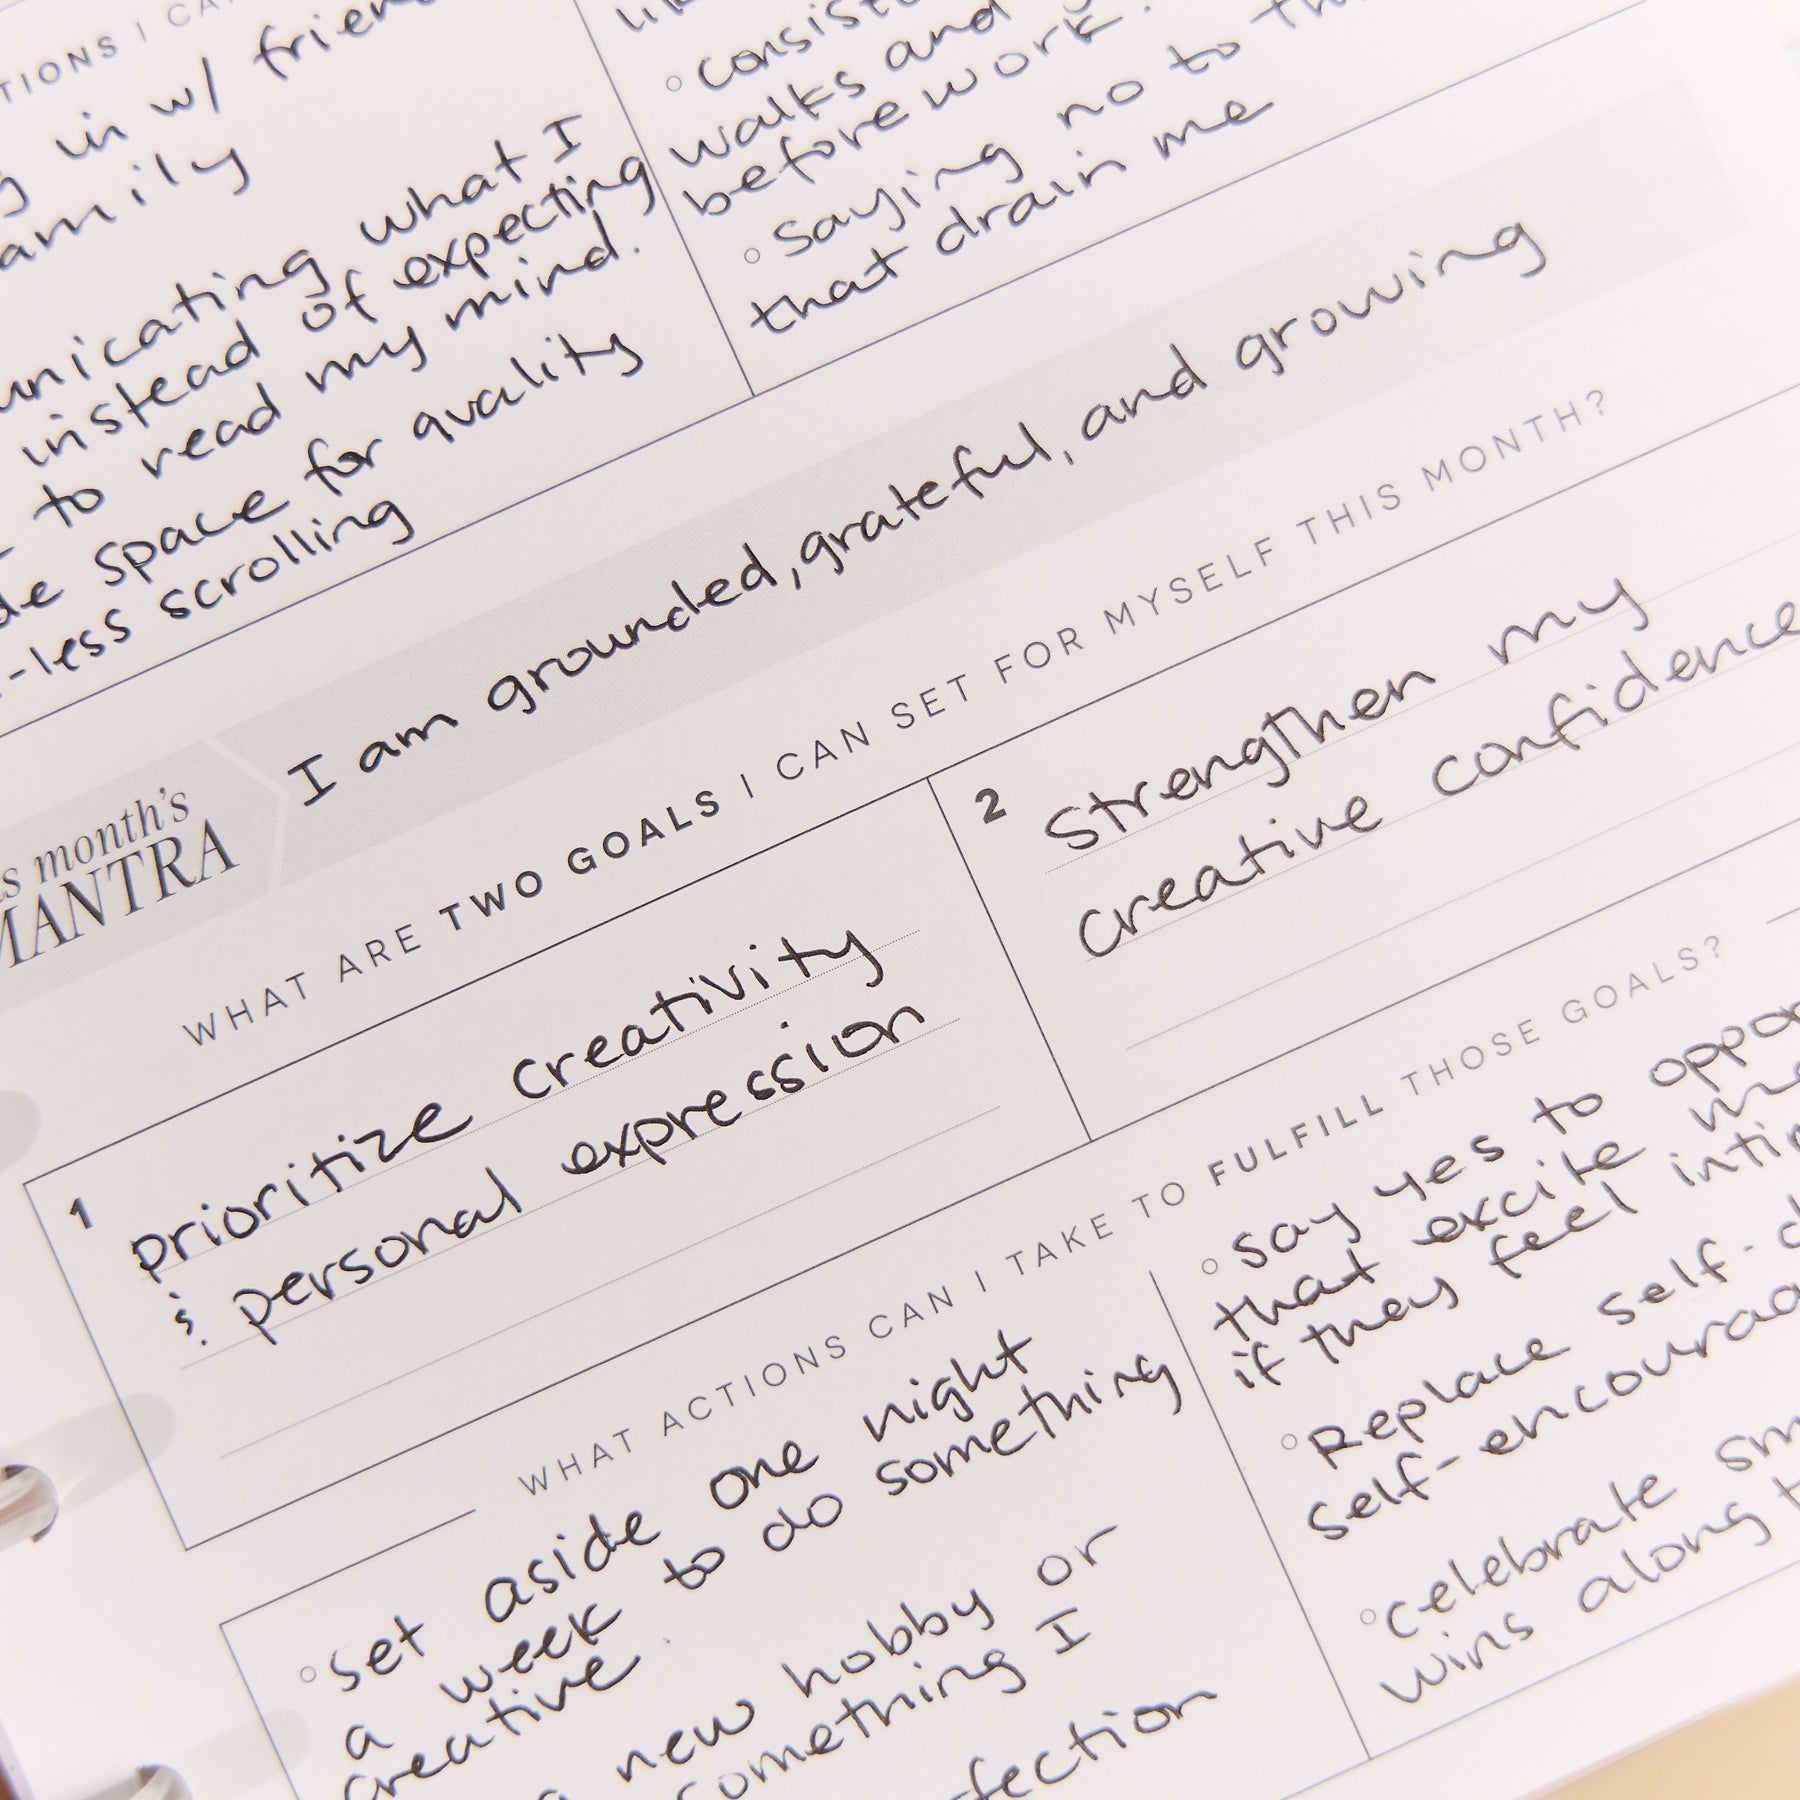 w/
in
what I
instead of expecting
to read my mind.
space for quality
-less scrolling
walks and
before work.
Saying no to
that drain me
month's
MANTRA
I am grounded, grateful, and growing
WHAT ARE TWO GOALS I CAN SET FOR MYSELF THIS MONTH?
1
prioritize creativity
& personal expression
2
Strengthen my
creative confidence
WHAT ACTIONS CAN I TAKE TO FULFILL THOSE GOALS?
Set aside one night
a week to do something
creative.
new hobby or
something I
Say yes to
that excite me
if they feel
Replace self-
self-
Celebrate
wins along